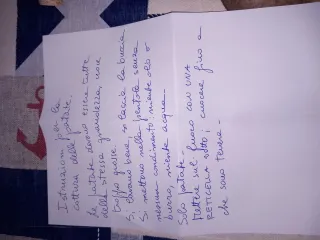 Istruzioni per la
cottura delle patate.
Le patate devono essere tutte
della stessa grandezza, non
troppo grosse.
Si lavano bene e si lascia la buccia
Si mettono nella pentola senza
nessun condimento niente olio o
burro, niente acqua.
Solo patate -
Mettere sul fuoco con UNA
RETICELLA sotto; cuocere fino a
che sono tenere -